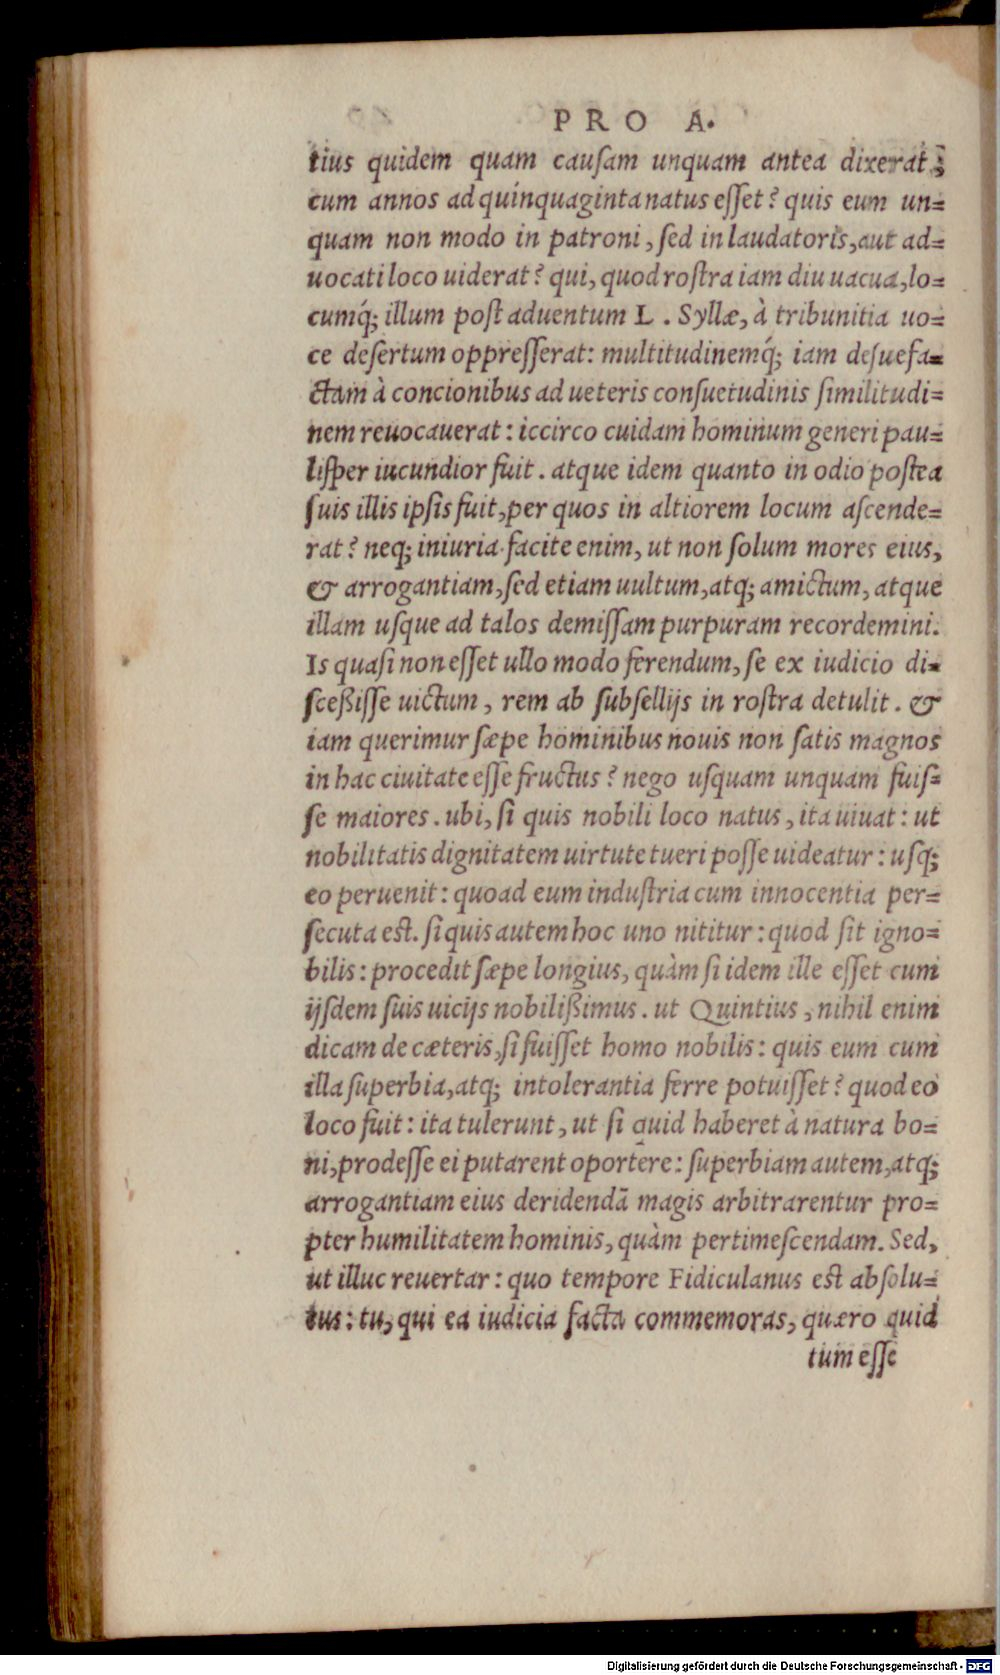 PRO A.
tius quidem quam cauſam unquam antea dixerat;
cum annos ad quinquaginta natus eſſet? quis eum un=
quam non modo in patroni, ſed in laudatoris, aut ad=
uocati loco uiderat? qui, quod roſtra iam diu uacua, lo=
cumq́; illum poſt aduentum L. Syllæ, à tribunitia uo=
ce deſertum oppreſſerat: multitudinemq́; iam deſuefa=
ctam à concionibus ad ueteris conſuetudinis ſimilitudi=
nem reuocauerat: iccirco cuidam hominum generi pau=
liſper iucundior fuit. atque idem quanto in odio poſtea
ſuis illis ipſis fuit, per quos in altiorem locum aſcende=
rat? neq; iniuria. facite enim, ut non ſolum mores eius,
& arrogantiam, ſed etiam uultum, atq; amictum, atque
illam uſque ad talos demiſſam purpuram recordemini.
Is quaſi non eſſet ullo modo ferendum, ſe ex iudicio di=
ſceßiſſe uictum, rem ab ſubſellijs in roſtra detulit. &
iam querimur ſæpe hominibus nouis non ſatis magnos
in hac ciuitate eſſe fructus? nego uſquam unquam fuiſ=
ſe maiores. ubi, ſi quis nobili loco natus, ita uiuat: ut
nobilitatis dignitatem uirtute tueri poſſe uideatur: uſq;
eo peruenit: quoad eum induſtria cum innocentia per=
ſecuta eſt. ſi quis autem hoc uno nititur: quod ſit igno=
bilis: procedit ſæpe longius, quàm ſi idem ille eſſet cum
ijſdem ſuis uicijs nobilißimus. ut Quintius, nihil enim
dicam de cæteris, ſi fuiſſet homo nobilis: quis eum cum
illa ſuperbia, atq; intolerantia ferre potuiſſet? quod eo
loco fuit: ita tulerunt, ut ſi quid haberet à natura bo=
ni, prodeſſe ei putarent oportere: ſuperbiam autem, atq;
arrogantiam eius deridendã magis arbitrarentur pro=
pter humilitatem hominis, quàm pertimeſcendam. Sed,
ut illuc reuertar: quo tempore Fidiculanus eſt abſolu=
tus: tu, qui ea iudicia facta commemoras, quæro quid
tum eſſe
Digitalisierung gefördert durch die Deutsche Forschungsgemeinschaft - DFG